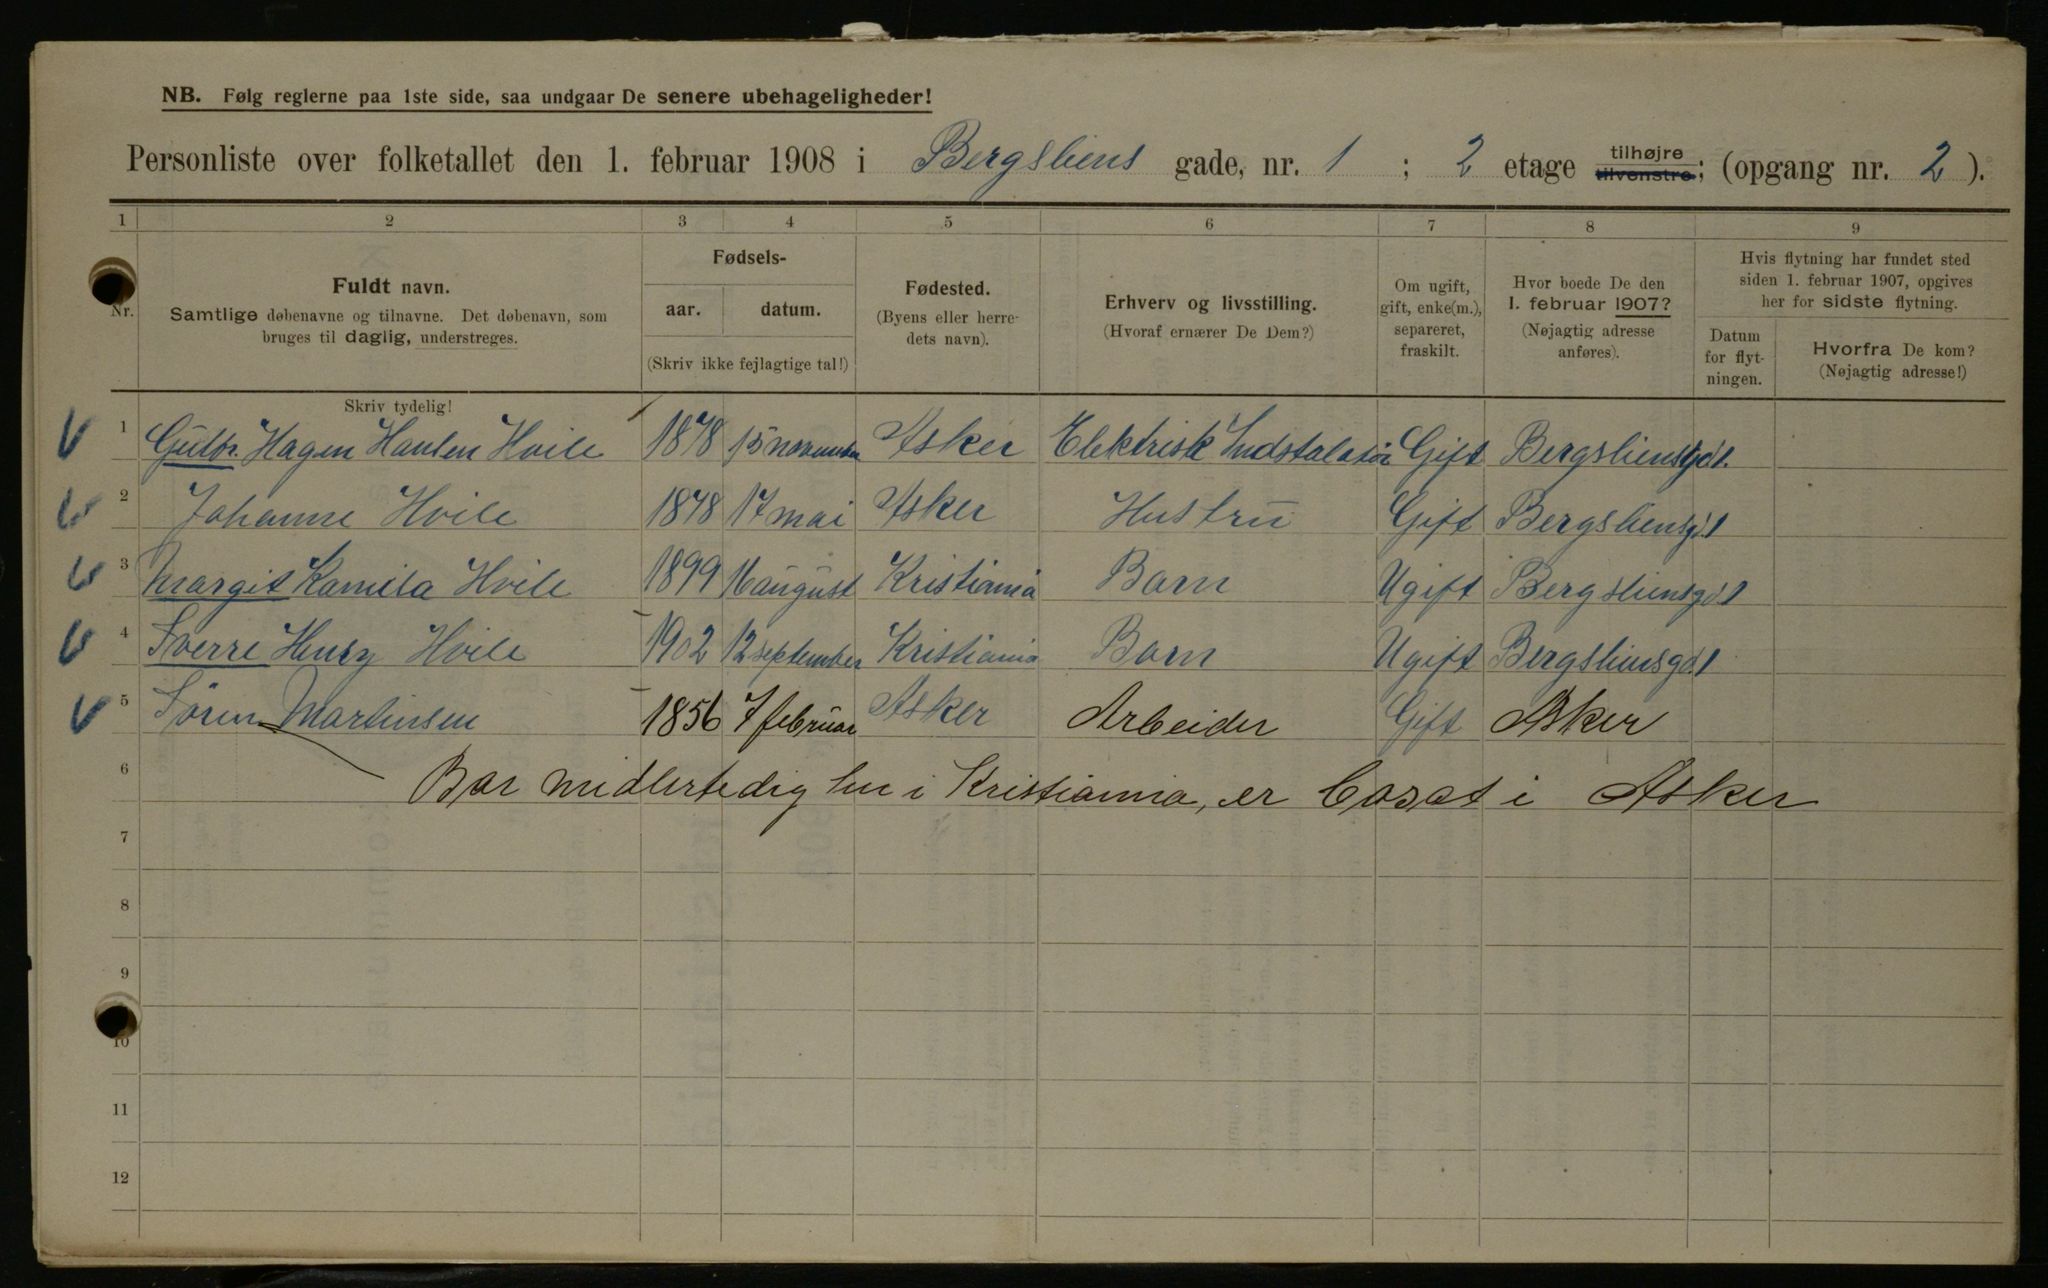 NB. Følg reglerne paa 1ste side, saa undgaar De senere ubehageligheder!
Personliste over folketallet den 1. februar 1908 i Bergsliens gade, nr. 1 ; 2 etage tilhøjre tilvenstre; (opgang nr. 2 ).
1 2 3 4 5 6 7 8 9
Nr.
Fuldt navn.
Samtlige døbenavne og tilnavne. Det døbenavn, som
bruges til daglig, understreges.
Skriv tydelig!
Fødsels-
aar. datum.
(Skriv ikke fejlagtige tal!)
Fødested.
(Byens eller herre-
dets navn).
Erhverv og livsstilling.
(Hvoraf ernærer De Dem?)
Om ugift,
gift, enke(m.),
separeret,
fraskilt.
Hvor boede De den
1. februar 1907?
(Nøjagtig adresse
anføres).
Hvis flytning har fundet sted
siden 1. februar 1907, opgives
her for sidste flytning.
Datum
for flyt-
ningen.
Hvorfra De kom?
(Nøjagtig adresse!)
1 Gutbr. Hagen Hansen Hvile 1878 15 november Asker Elektrisk Indstalatør Gift Bergsliensgd 1.
2 Johanne Hvile 1878 17 mai Asker Hustru Gift Bergsliensgd 1
3 Margit Kamila Hvile 1899 16 august Kristiania Barn Ugift Bergsliensgd 1
4 Sverre Henry Hvile 1902 12 september Kristiania Barn Ugift Bergsliensgd 1
5 Søren Martinsen 1856 7 februar Asker Arbeider Gift Asker
6 Bor midlertedig her i Kristiania, er bosat i Asker
7
8
9
10
11
12